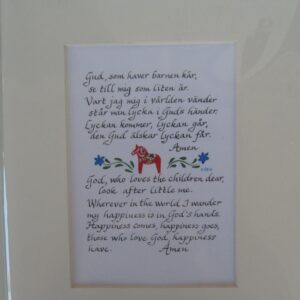 Gud, som haver barnen kär,
se till mig som liten är.
Vart jag mig i världen vänder
står man lycka i Guds händer.
Lyckan kommer, lyckan går,
den Gud älskar lyckan får.
Amen
God, who loves the children dear,
look after little me.
Wherever in the world I wander
my happiness is in God's hands.
Happiness comes, happiness goes,
those who love God happiness
have. Amen